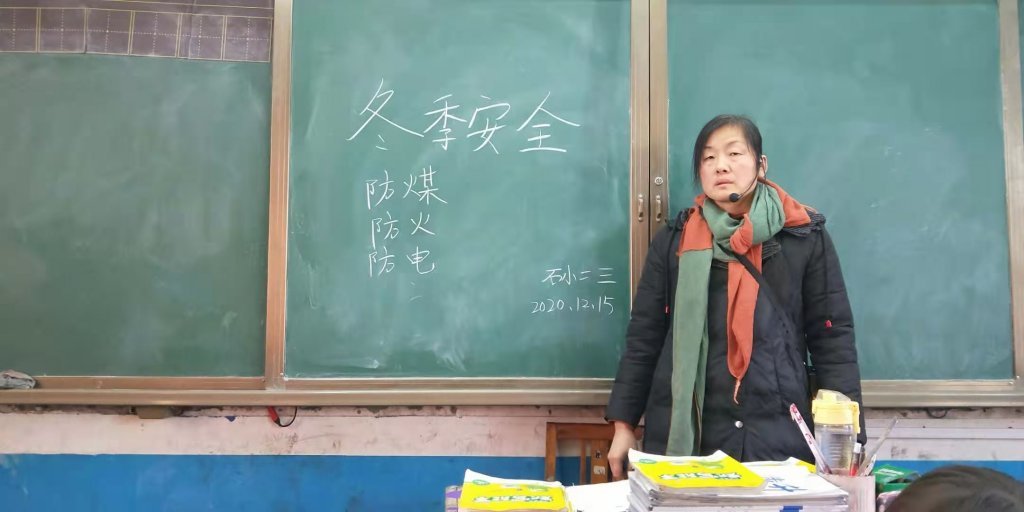 冬季安全
防煤
防火
防电
石小二三
2020.12.15